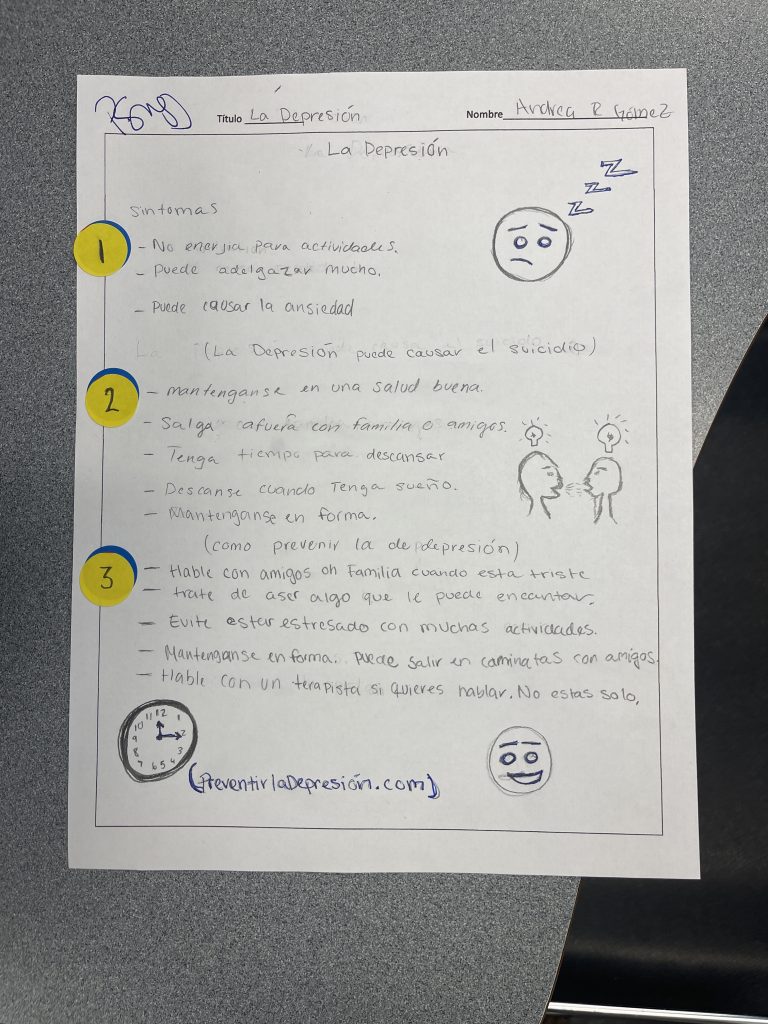 Título La Depresión Nombre Andrea R Gómez
La Depresión
Sintomas
1 - No enerjia para actividades.
- Puede adelgazar mucho.
- Puede causar la ansiedad
(La Depresión puede causar el suicidio)
2 - mantenganse en una salud buena.
- Salga afuera con familia o amigos.
- Tenga tiempo para descansar
- Descanse cuando Tenga sueño.
- Mantenganse en forma.
(como prevenir la de depresión)
3 - Hable con amigos oh Familia cuando esta triste
- trate de aser algo que le puede encantar.
- Evite estar estresado con muchas actividades.
- Mantenganse en forma. Puede salir en caminatas con amigos.
- Hable con un terapista si quieres hablar. No estas solo,
(PreventirlaDepresión.com)
Z
Z
Z
11 12 1
10 2
9 3
8 4
7 6 5